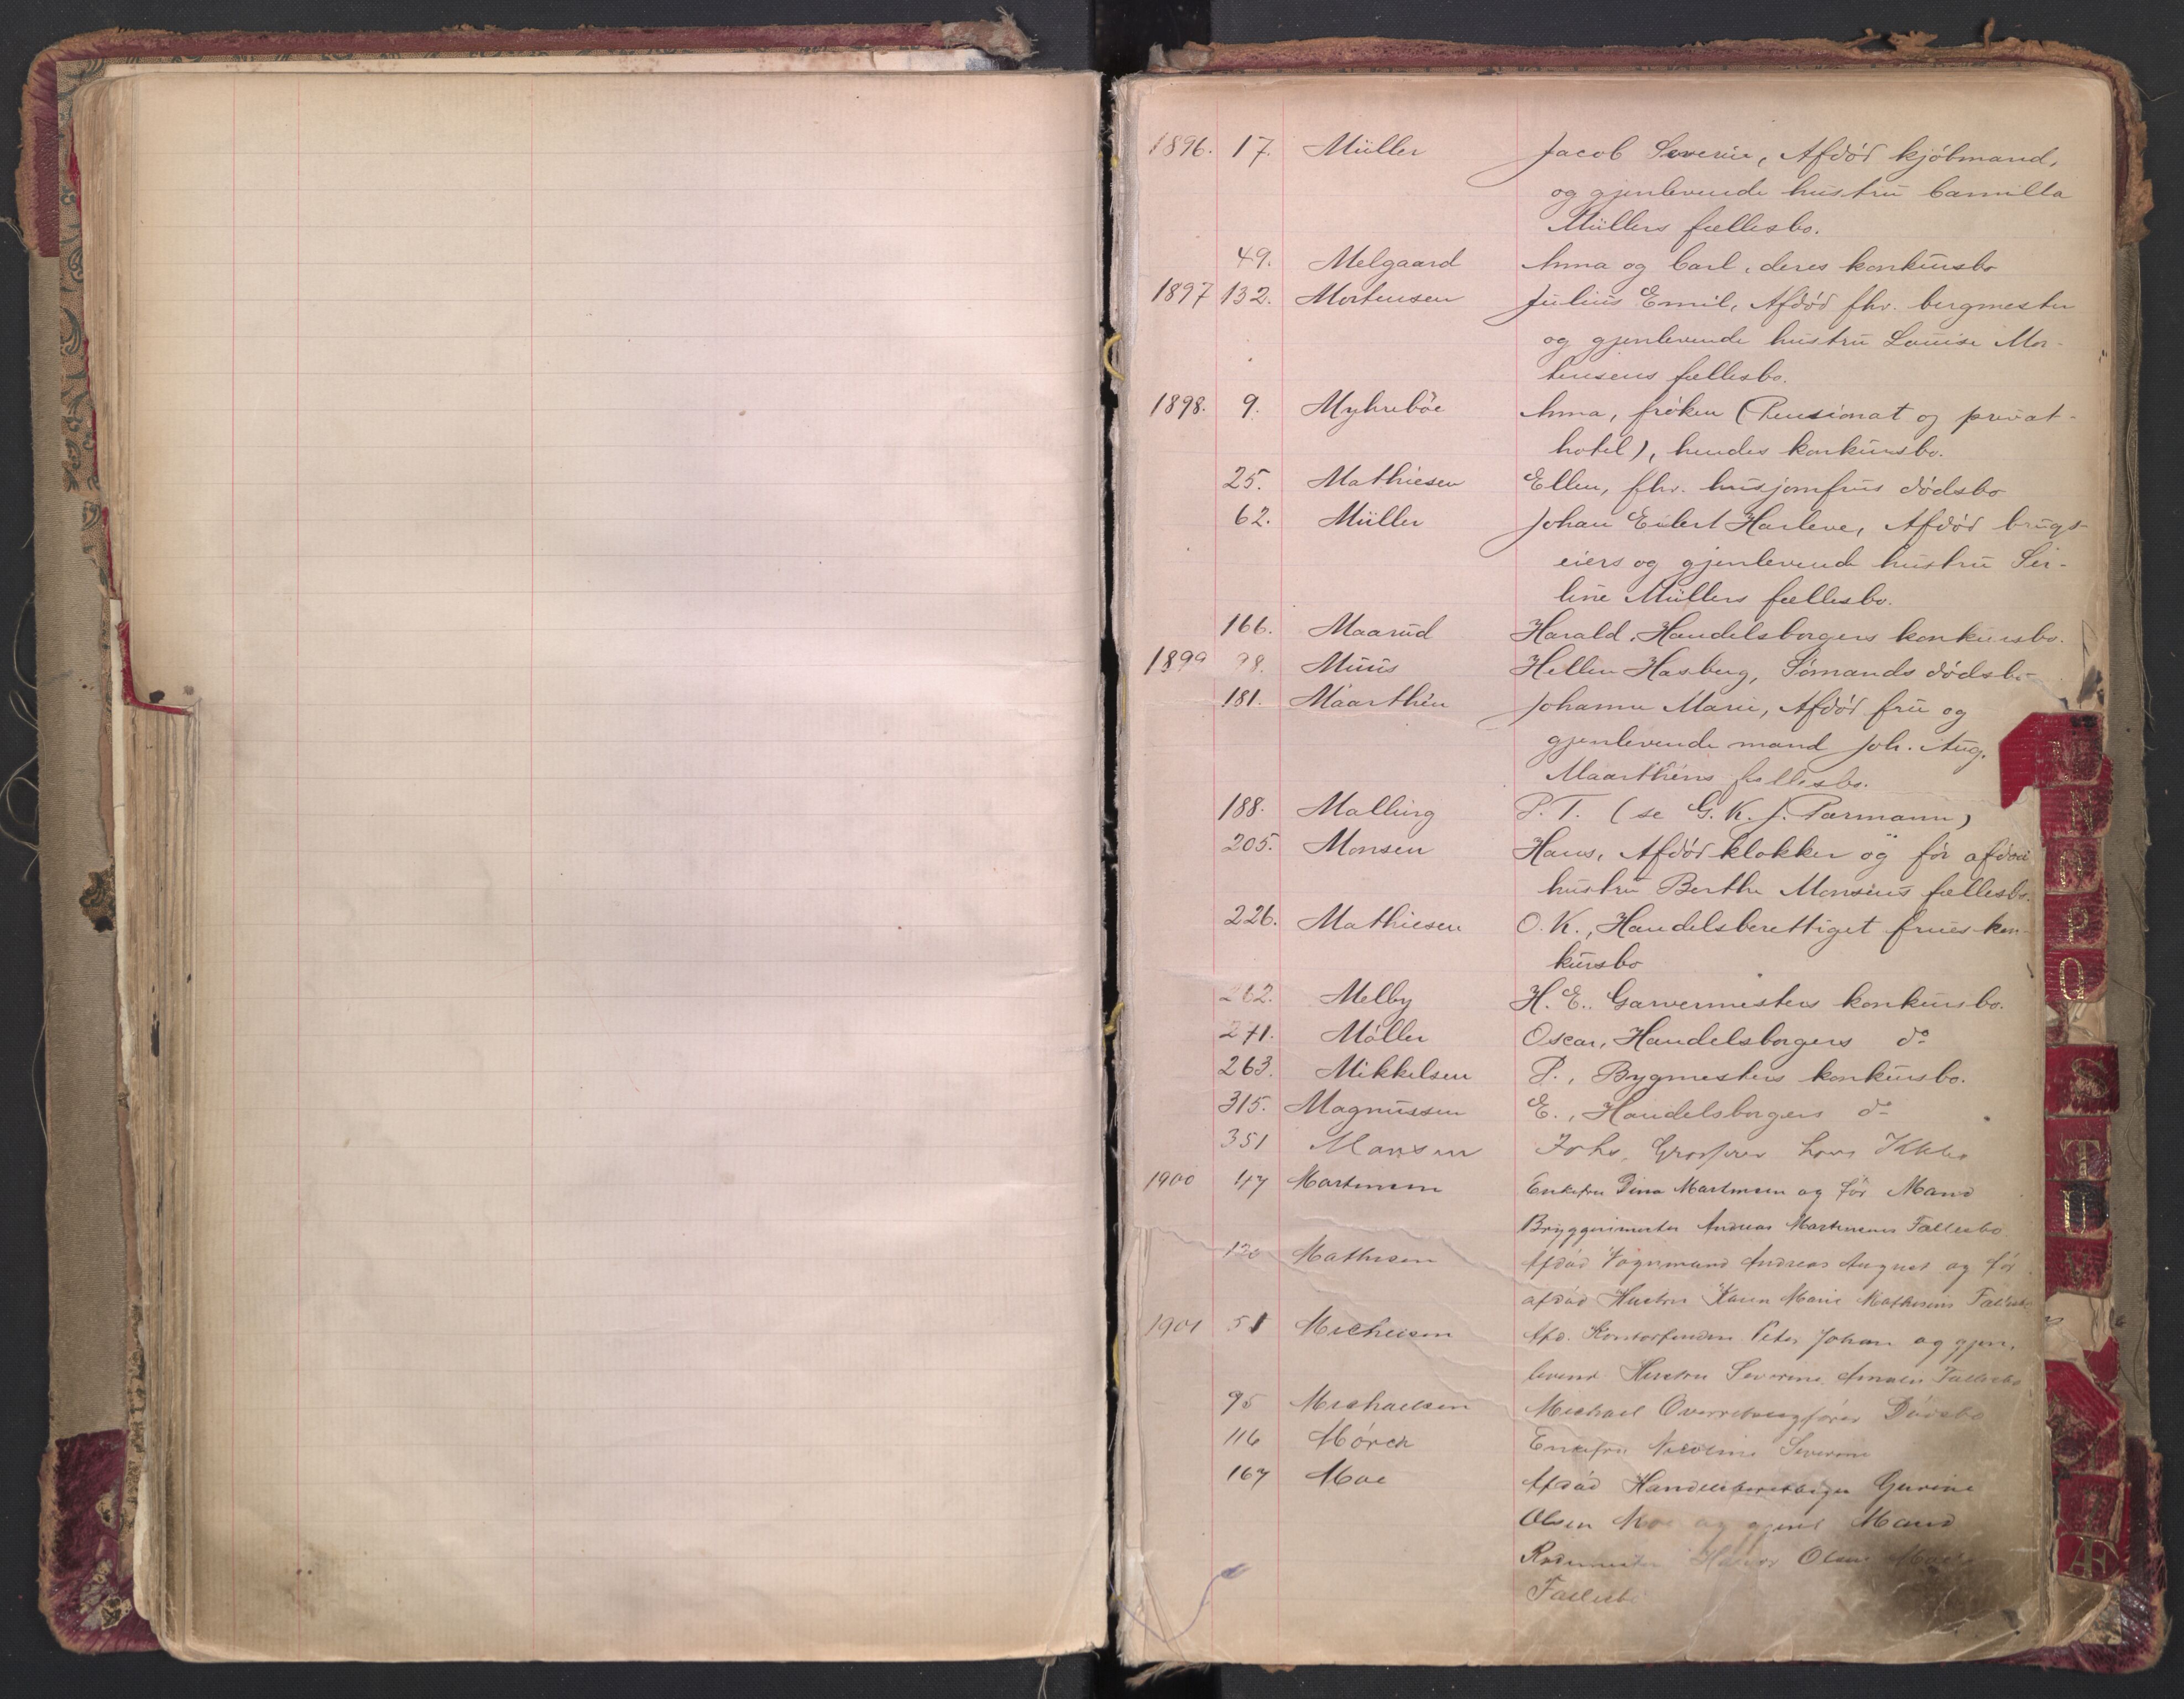 1896. 17. Müller Jacob Severin, Afdød kjøbmand,
og gjenlevende hustru Camilla
Müllers fællesbo.
49. Melgaard Anna og Carl, deres konkursbo
1897 132. Mortensen Julius Emil, Afdød fhv. bergmester
og gjenlevende hustru Louise Mor-
tensens fællesbo.
1898. 9. Myhreböe Anna, frøken (Pensionat og privat-
hotel), hendes konkursbo.
25. Mathiesen Ellen, fhv. husjomfrus dødsbo
62. Müller Johan Eilert Harleve, Afdød brugs-
eiers og gjenlevende hustru Ser-
line Müllers fællesbo.
166. Maarud Harald, Handelsborgers konkursbo.
1899 98. Muus Hellen Hasberg, Sømands dødsbo
181. Maarthén Johanne Marie, Afdød fru og
gjenlevende mand Joh. Aug.
Maarthéns fællesbo.
188. Malling P. T. (se G. K. J. Parmann)
205. Monsen Hans, Afdød klokker og før afdøde
hustru Berthe Monsens fællesbo.
226. Mathiesen O. K., Handelsberettiget frues kon-
kursbo
262. Melby H. E. Garvermesters konkursbo.
271. Møller Oscar, Handelsborgers do
263. Mikkelsen P., Bygmesters konkursbo.
315. Magnussen E., Handelsborgers do
351 Monsen Johs,
1900 47 Martinsen Enkefru Dina Martinsen og før Mand
Bryggerimester Andreas Martinsens Fællesbo
130 Mathisen Afdød Vognmand Andreas August og før
afdød Hustru Karen Marie Mathisens Fællesbo
1901 51 Michelsen Afd. Kontorfuldm. Peter Johan og gjen-
levend Hustru Severine Fællesbo
95 Michaelsen Michael Overretssagfører Dødsbo
116 Mørch Enkefru Nicoline Severine
167 Moe Afdød Handelsberettiget Gurine
Olsen Moe og gjenl Mand
Rodemester Olsen Moes
Fællesbo